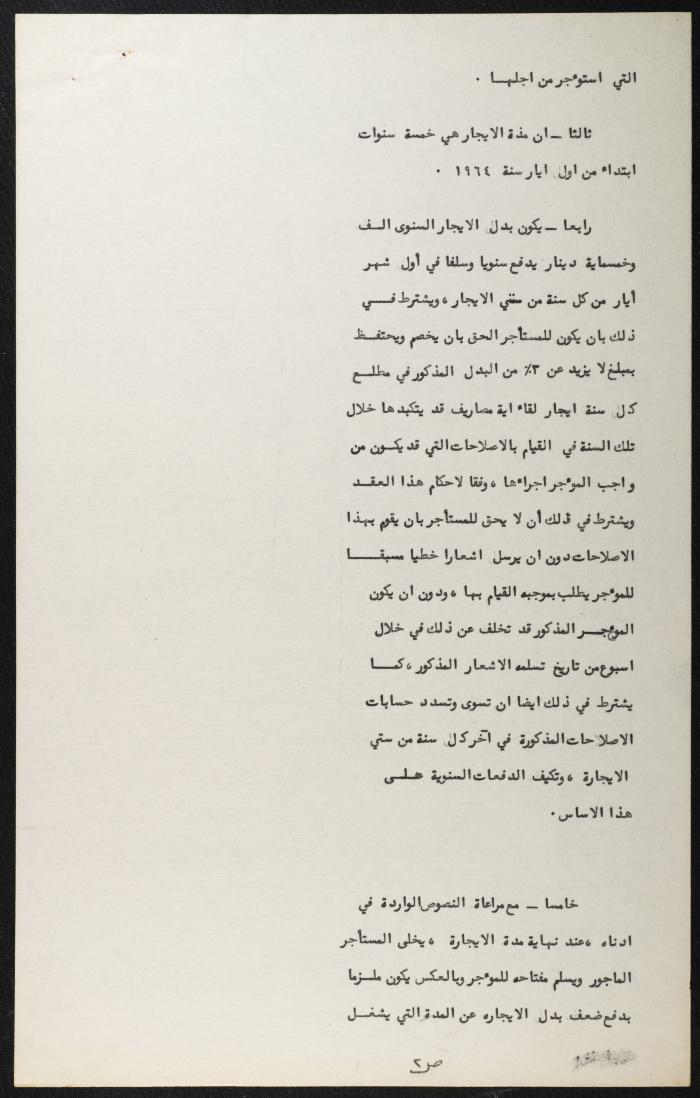 التي استوءجر من اجلهــا ٠
ثالثا ــ ان مدة الايجار هي خمسة سنوات
ابتداء من اول ايار سنة ١٩٦٤ ٠
رابعا ــ يكون بدل الايجار السنوى الــف
وخمسماية دينار يدفع سنويا وسلفا في أول شهر
أيار من كل سنة من سني الايجار ، ويشترط فــــي
ذلك بان يكون للمستأجر الحق بان يخصم ويحتفــظ
بمبلغ لا يزيد عن ٣٪ من البدل المذكور في مطلــع
كل سنة ايجار لقاء اية مصاريف قد يتكبدها خلال
تلك السنة في القيام بالاصلاحات التي قد يكــون من
واجب الموءجر اجراءها ، وفقا لاحكام هذا العقــد
ويشترط في ذلك أن لا يحق للمستأجر بان يقوم بهذا
الاصلاحات دون ان يرسل اشعارا خطيا مسبقـــــا
للموءجر يطلب بموجبه القيام بها ، ودون ان يكون
الموءجــر المذكور قد تخلف عن ذلك في خلال
اسبوع من تاريخ تسلمه الاشعار المذكور ، كمــــا
يشترط في ذلك ايضا ان تسوى وتسدد حسابات
الاصلاحات المذكورة في آخر كل سنة من ستي
الايجارة ، وتكيف الدفعات السنوية علــى
هذا الاساس ٠
خامسا ــ مع مراعاة النصوص الواردة في
ادناه ، عند نهاية مدة الايجارة ، يخلى المستأجر
الماجور ويسلم مفتاحه للموءجر وبالعكس يكون ملــزما
بدفع ضعف بدل الايجاره عن المدة التي يشغــل
ص٢